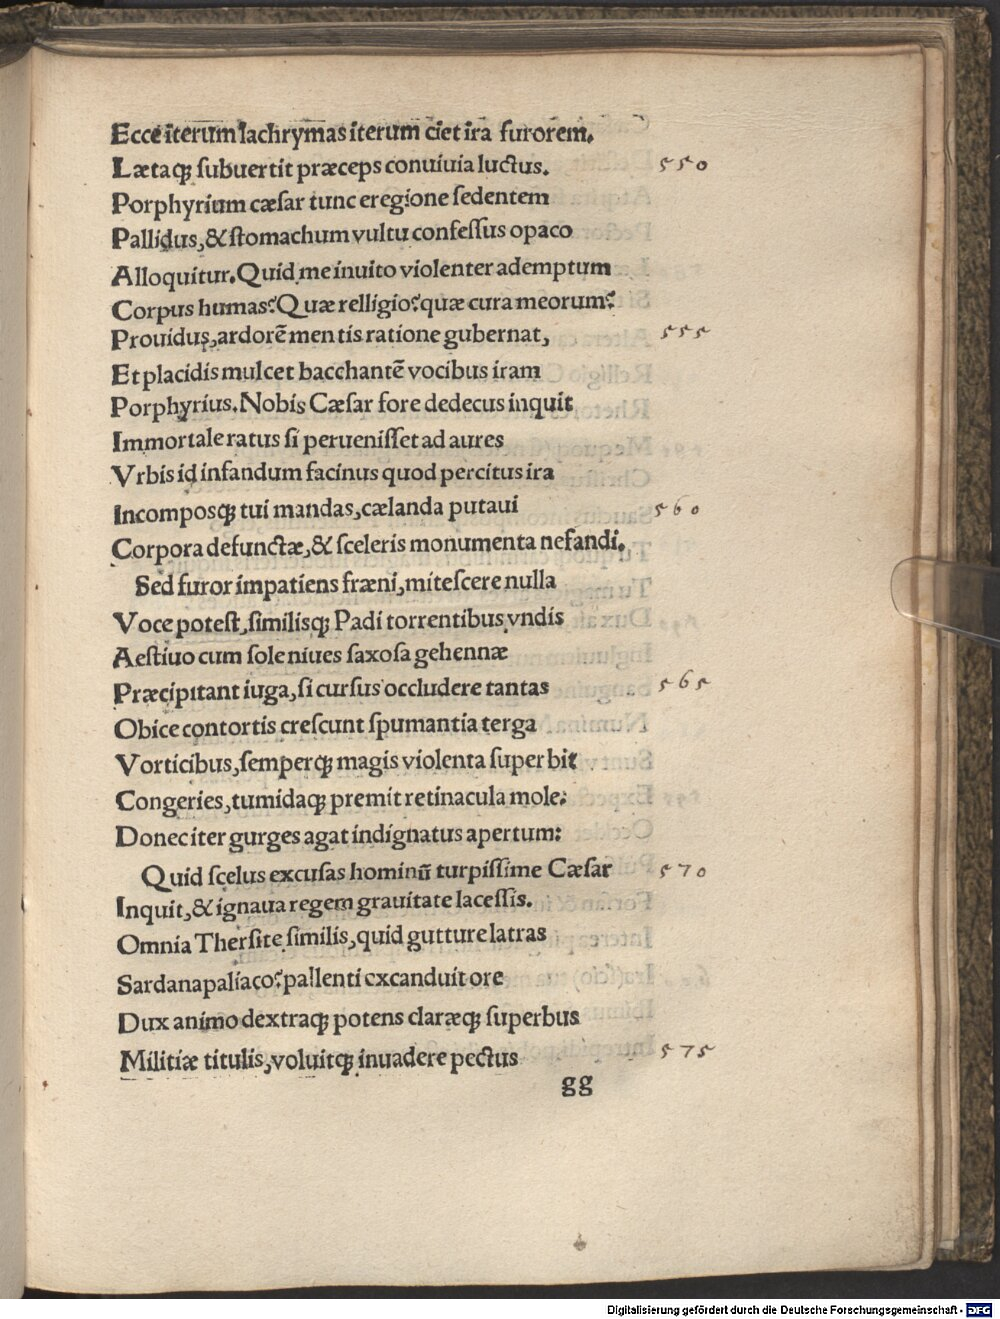 Ecce iterum lachrymas iterum ciet ira furorem.
Lætaqꝫ subuertit præceps conuiuia luctus. 550
Porphyrium cæsar tunc eregione sedentem
Pallidus, & stomachum vultu confessus opaco
Alloquitur. Quid me inuito violenter ademptum
Corpus humas? Quæ relligio? quæ cura meorum?
Prouidus, ardorē mentis ratione gubernat, 555
Et placidis mulcet bacchantē vocibus iram
Porphyrius. Nobis Cæsar fore dedecus inquit
Immortale ratus si peruenisset ad aures
Vrbis id infandum facinus quod percitus ira
Incomposqꝫ tui mandas, cælanda putaui 560
Corpora defunctæ, & sceleris monumenta nefandi.
Sed furor impatiens fræni, mitescere nulla
Voce potest, similisqꝫ Padi torrentibus vndis
Aestiuo cum sole niues saxosa gehennæ
Præcipitant iuga, si cursus occludere tantas 565
Obice contortis crescunt spumantia terga
Vorticibus, semperqꝫ magis violenta superbit
Congeries, tumidaqꝫ premit retinacula mole:
Donec iter gurges agat indignatus apertum:
Quid scelus excusas hominū turpissime Cæsar 570
Inquit, & ignaua regem grauitate lacessis.
Omnia Thersite similis, quid gutture latras
Sardanapaliaco? pallenti excanduit ore
Dux animo dextraqꝫ potens claræqꝫ superbus
Militiæ titulis, voluitqꝫ inuadere pectus 575
gg
Digitalisierung gefördert durch die Deutsche Forschungsgemeinschaft - DFG